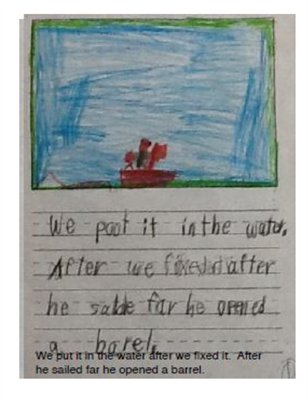 We poot it in the water,
After we fixed it after
he salde far he opened
a barel.
We put it in the water after we fixed it.  After
he sailed far he opened a barrel.